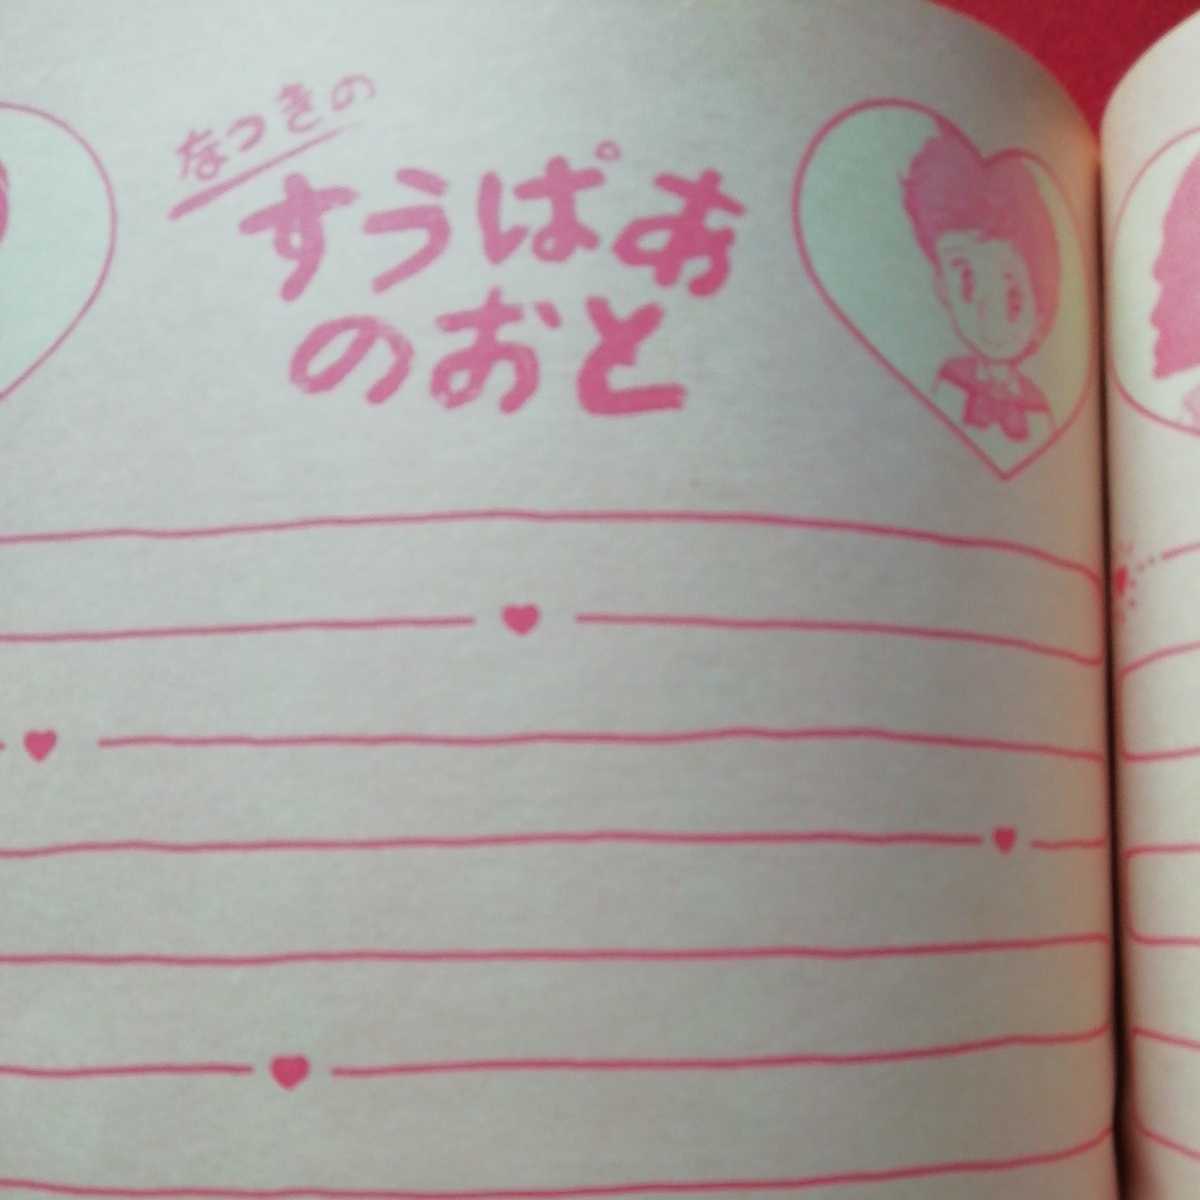 なつきの
すうぱあ
のおと